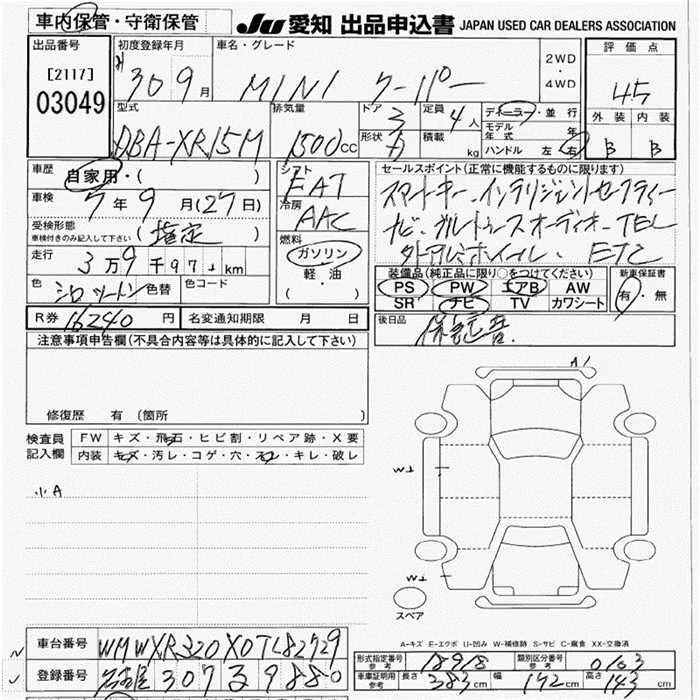 車内保管・守衛保管
JU 愛知 出品申込書 JAPAN USED CAR DEALERS ASSOCIATION
出品番号 初度登録年月 車名・グレード 評価点
[2117] 30 9月 MINI クーパー 2WD・4WD 4.5
03049
型式 排気量 ドア 3 定員 4人 ディーラー・並行 外装 内装
DBA-XR15M 1500cc 形状 積載 kg モデル年式 年 B B
ハンドル 左 右
車歴 自家用・( ) シフト FAT セールスポイント(正常に機能するものに限ります)
車検 7年9月(27日) 冷房 AAC スマートキー、インテリジェントセーフティー
受検形態 車検付きのみ記入して下さい (指定) 燃料 ナビ・ブルートゥースオーディオ・TEL
走行 3万9千97 km ガソリン 軽・油 ( ) 外アルミホイール・ETC
装備品(純正品に限り○をつけてください) 新車保証書
色 シロツートン 色替 色コード PS PW エアB AW 有・無
SR ナビ TV カワシート
R券 16240円 名変通知期限 月 日 後日品 保記書
注意事項申告欄(不具合内容等は具体的に記入して下さい)
修復歴 有 (箇所
検査員記入欄 FW キズ・飛石・ヒビ割・リペア跡・X要
内装 キズ・汚レ・コゲ・穴・スレ・キレ・破レ
A1
W1
小A
W1
スペア
A-キズ E-エクボ U-凹み W-補修跡 S-サビ C-腐食 XX-交換済
車台番号 WMWXR320X0TL82729 形式指定番号 参考 18918 類別区分番号 参考 0103
登録番号 名古屋 307 9880 車庫証明用 参考 長さ 383cm 幅 172cm 高さ 143cm